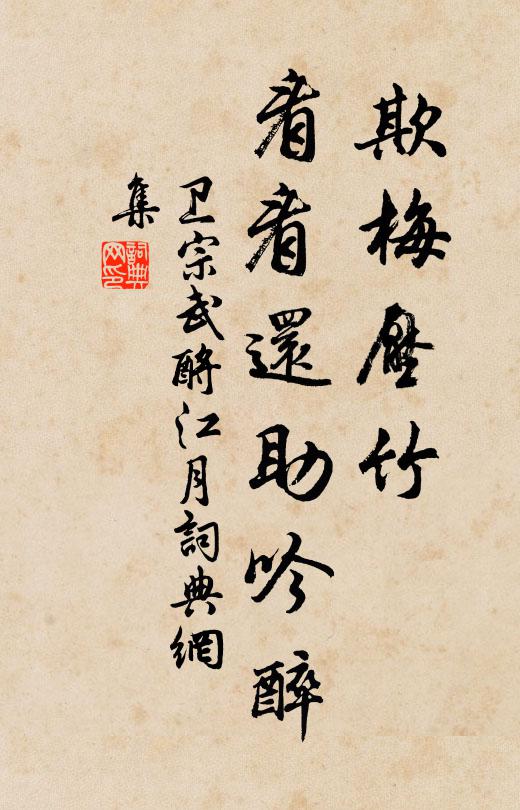 欺梅壓竹
看看還助吟醉
卫宗武酹江月詞典網
集
詞典
网印